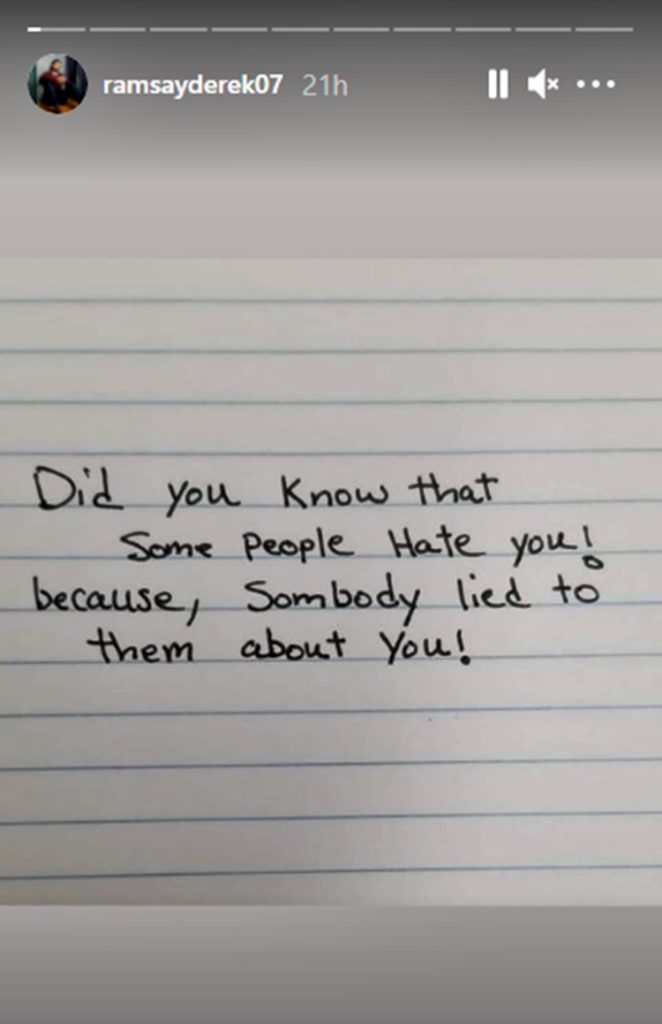 ramsayderek07 21h
Did you know that
Some people Hate you!
because, Sombody lied to
them about You!